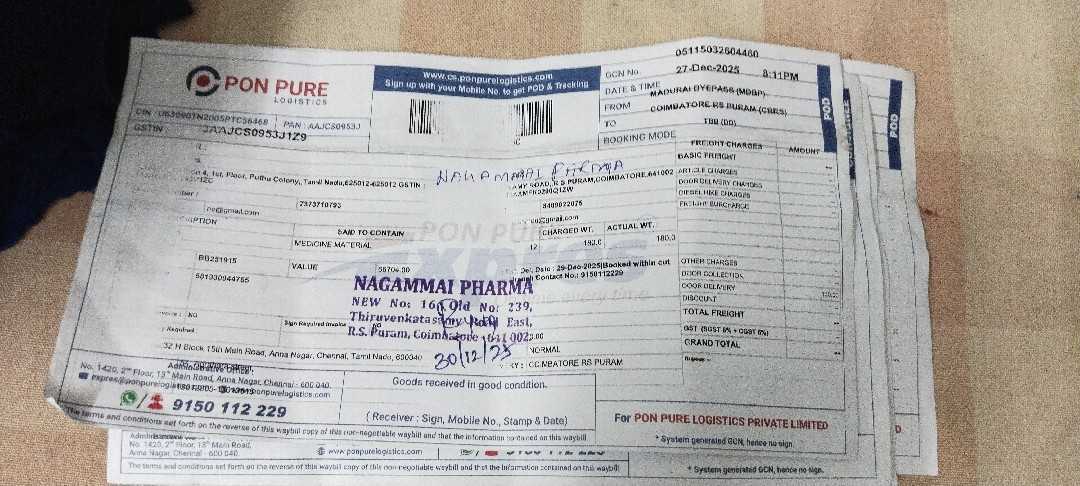 PON PURE
LOGISTICS
www.cs.ponpurelogistics.com
Sign up with your Mobile No. to get POD & Tracking
GCN No.
05115032604460
DATE & TIME
27-Dec-2025 8:11PM
FROM
MADURAI BYEPASS (MDBP)
TO
COIMBATORE RS PURAM (CBRS)
BOOKING MODE
TBB (DD)
POD
POD
PAN : AAJCS0953J
GSTIN
NAGAMMAI PHARMA
1st, Floor, Puthu Colony, Tamil Nadu,625012-625012 GSTIN :
ROAD, R S PURAM,COIMBATORE,641002
7373710793
8489022075
@gmail.com
@gmail.com
SAID TO CONTAIN
MEDICINE MATERIAL
CHARGED WT.
ACTUAL WT.
12
180.0
180.0
VALUE
Del. Date : 29-Dec-2025|Booked within cut
Contact No.: 9150112229
501330944755
FREIGHT CHARGES
AMOUNT
BASIC FREIGHT
ARTICLE CHARGES
DOOR DELIVERY CHARGES
DIESEL HIKE CHARGES
FREIGHT SURCHARGE
OTHER CHARGES
DOOR COLLECTION
DOOR DELIVERY
DISCOUNT
TOTAL FREIGHT
GST (SGST 6% + CGST 6%)
GRAND TOTAL
Rupees
NAGAMMAI PHARMA
NEW No: 16, Old No: 239,
Thiruvenkatasamy Road East,
R.S. Puram, Coimbatore - 641 002.
30/12/25
NO
Sign Required Invoice
NO
Required
NORMAL
COIMBATORE RS PURAM
32 H Block 15th Main Road, Anna Nagar, Chennai, Tamil Nadu, 600040
Administrative Office :
No. 1420, 2nd Floor, 13th Main Road, Anna Nagar, Chennai - 600 040.
9150 112 229
Goods received in good condition.
(Receiver : Sign, Mobile No., Stamp & Date)
For PON PURE LOGISTICS PRIVATE LIMITED
* System generated GCN, hence no sign.
The terms and conditions set forth on the reverse of this waybill copy of this non-negotiable waybill and that the information contained on this waybill
No. 1420, 2nd Floor, 13th Main Road,
Anna Nagar, Chennai - 600 040
www.ponpurelogistics.com
The terms and conditions set forth on the reverse of this waybill copy of this non-negotiable waybill and that the information contained on this waybill
* System generated GCN, hence no sign.